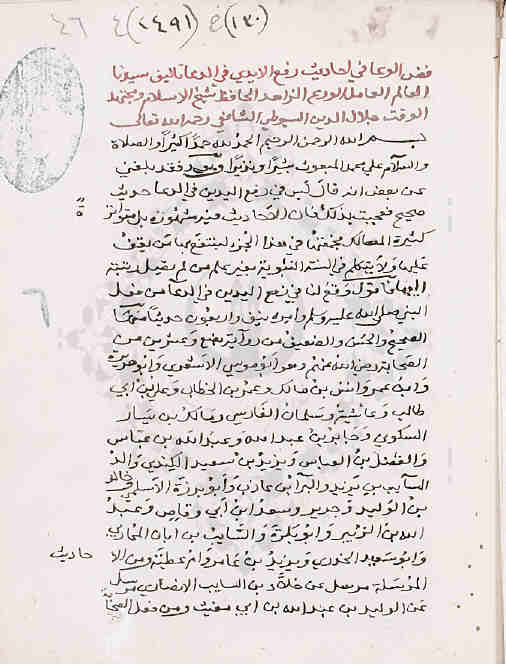 (١٣٠) خ (٢٤٩١) ٤ ٤٦
فض الوعا في احاديث رفع الايدي في الدعا تاليف سيدنا
العالم العامل الورع الزاهد الحافظ شيخ الاسلام ومجتهد
الوقت جلال الدين السيوطي الشافعي رحمه الله تعالى
بسم الله الرحمن الرحيم الحمد لله حمدا كثيرا والصلاة
والسلام على محمد المبعوث بشيرا ونذيرا وبعد فقد بلغني
عن بعض انه قال ليس في رفع اليدين في الدعا حديث
صحيح فعجبت لذلك فان الاحاديث فيه مشهورة بل متواترة
كثيرة المسالك فجمعتها في هذا الجزء لينتفع بها من يقف
عليها ولا يتكلم في السنة النبوية بغير علم من لم يصل رتبته
اليها فاقول وقع لنا في رفع اليدين في الدعا من فعل
النبي صلى الله عليه وسلم وامره نيف واربعون حديثا منها
الصحيح والحسن والضعيف من رواية بضع وعشرين من
الصحابة رضي الله عنهم وهو ابو موسى الاشعري وابو هريرة
وابن عمر وانس بن مالك وعمر بن الخطاب وعلي بن ابي
طالب وعائشة وسلمان الفارسي ومالك بن يسار
السكوني وجابر بن عبد الله وعبد الله بن عباس
والفضل بن العباس ويزيد بن سعيد الكندي والد
السايب بن يزيد والبرا بن عازب وابو برزة الاسلمي وخالد
بن الوليد وجرير وسعد ابن ابي وقاص وعبد
الله بن الزبير وابو بكرة والسايب بن ابان المحاربي
وابو سعيد الخدري ويزيد بن عامر وام عطية ومن الا
حاديث
المرسلة مرسل عن خلاد بن السايب الانصاري مرسل
عن الوليد بن عبد الله بن ابي مغيث ومن فعل الصحابة